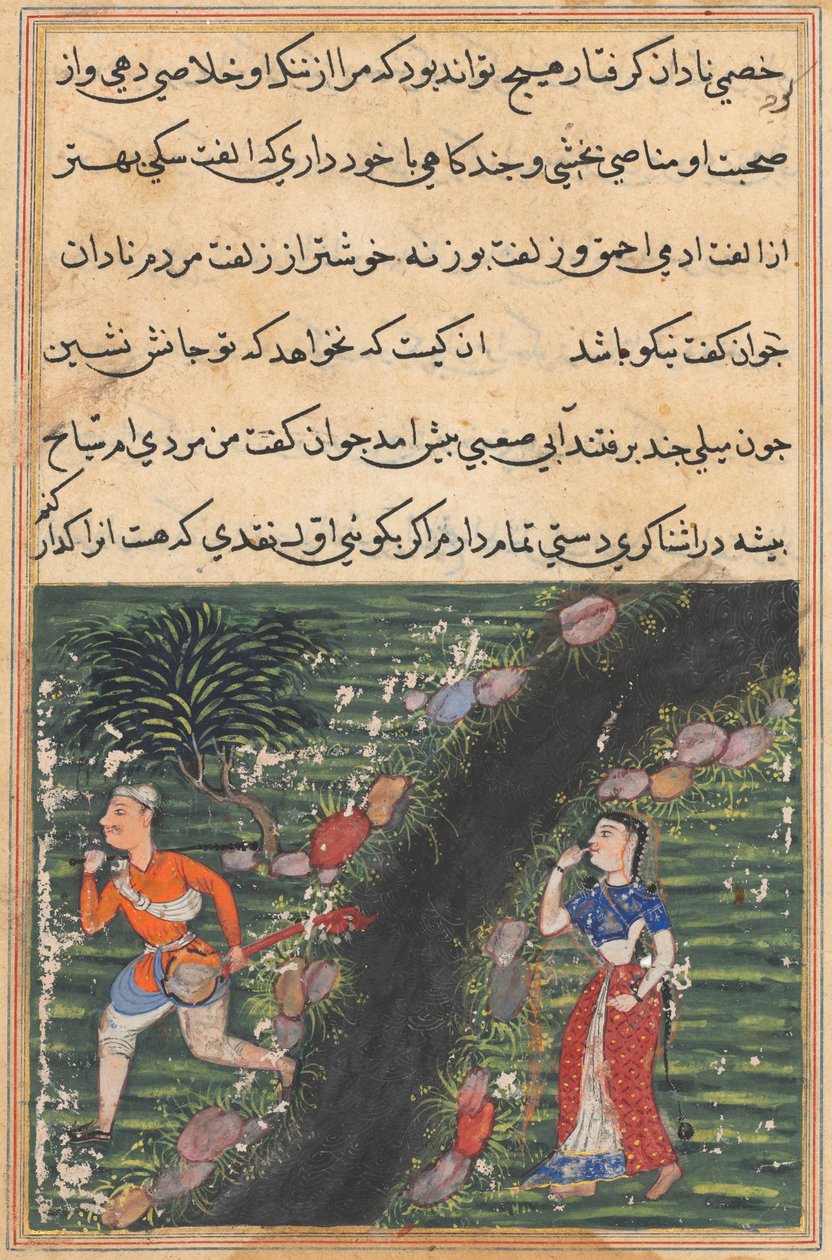 خصي نادان گرفتار هیچ تواند بود که مرا از ننک او خلاصي دهي و از
صحبت او مناصي بخشي و جند کاهي با خود داري که الفت سکي بهتر
از الفت ادمي احمق و زلفت بوزنه خوشتر از زلفت مردم نادان
جوان کفت نیکو باشد ان کیست که نخواهد که تو جانش نشین
جون میلي جند برفتند آبي صعبي بیش امد جوان کفت من مردي ام سیاح
بیشه در اشناکري دستي تمام دارم اکر بکوئي اول نقدي که هست انرا کذار کنم